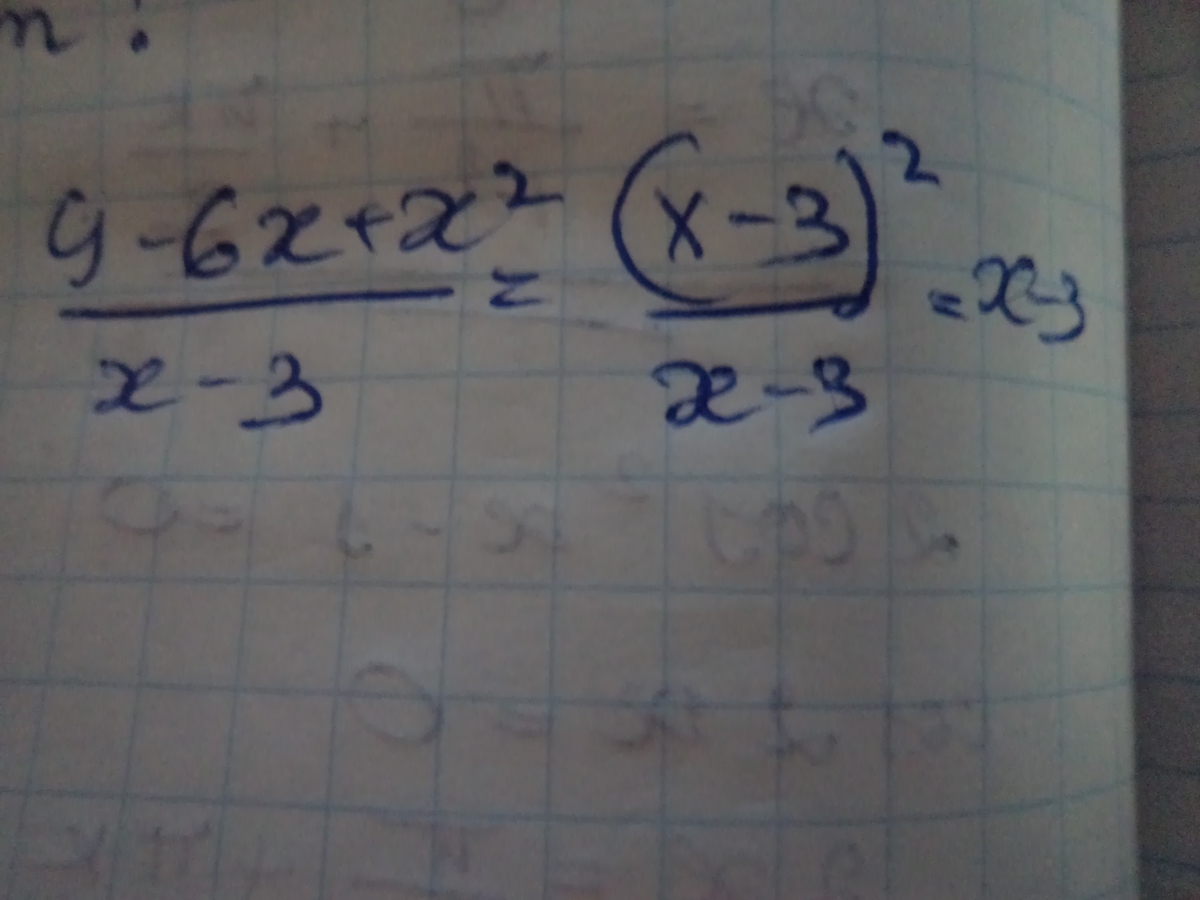 n!
9-6x+x²/x-3 = (x-3)²/x-3 = x-3